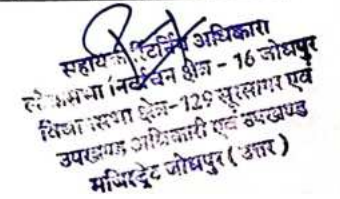 सहायक रिटर्निंग अधिकारी
लोकसभा निर्वाचन क्षेत्र - 16 जोधपुर
विधानसभा क्षेत्र-129 सूरसागर एवं
उपखण्ड अधिकारी एवं उपखण्ड
मजिस्ट्रेट जोधपुर (उत्तर)